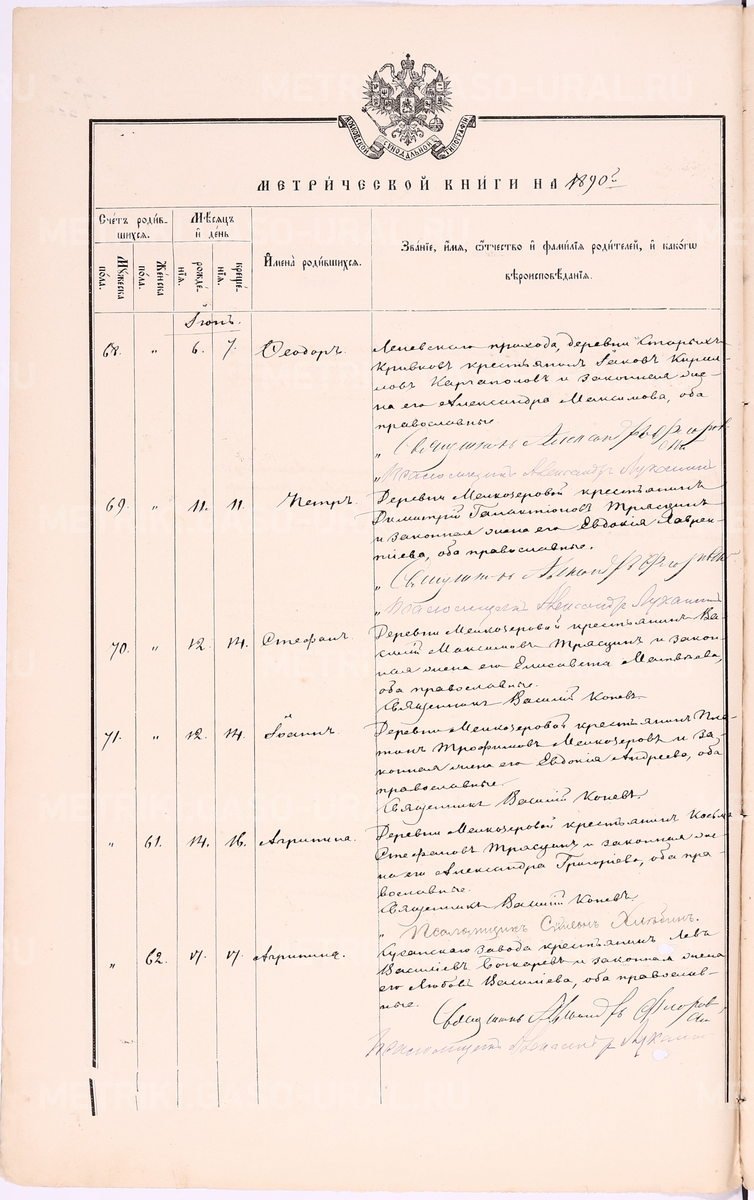 МОСКОВСКОЙ СѴНОДАЛЬНОЙ ТИПОГРАФІИ
МЕТРИ́ЧЕСКОЙ КНИ́ГИ НА 1890 г.
Сче́тъ роди́в-
шихся.
Мѣсяцъ
и҆ де́нь
Мꙋ́жеска
по́ла.
Же́нска
по́ла.
рожде́-
нїѧ.
креще́-
нїѧ.
И҆мена̀ роди́вшихся.
Зва́нїе, и҆́мѧ, ѻ҆́тчество и҆ фами́лїѧ роди́телей, и҆ како́гѡ
вѣроисповѣ́данїѧ.
Іюнь.
68. " 6. 7. Ѳеодоръ. Леневскаго прихода, деревни Старыхъ
Кривковъ крестьянинъ Іаковъ Кирил-
ловъ Каргаполовъ и законная же-
на его Александра Максимова, оба
православные
" Священникъ Александръ Флоров-
скій
" Псаломщикъ Александръ Луканинъ
69. " 11. 11. Петръ. Деревни Мелкозеровой крестьянинъ
Димитрій Галактіоновъ Трясцинъ
и законная жена его Евдокія Лаврен-
тіева, оба православные.
" Священникъ Александръ Флоровскій
" Псаломщикъ Александръ Луканинъ
70. " 12. 14. Стефанъ. Деревни Мелкозеровой крестьянинъ Ва-
силій Максимовъ Трясцинъ и закон-
ная жена его Елисавета Матвѣева,
оба православные.
Священникъ Василій Коневъ.
71. " 12. 14. Іоаннъ. Деревни Мелкозеровой крестьянинъ Пла-
тонъ Трофимовъ Мелкозеровъ и за-
конная жена его Евдокія Андреева, оба
православные.
Священникъ Василій Коневъ.
" 61. 14. 16. Агрипина. Деревни Мелкозеровой крестьянинъ Косьма
Стефановъ Трясцинъ и законная же-
на его Александра Григоріева, оба пра-
вославные.
Священникъ Василій Коневъ.
" Псаломщикъ Симеонъ Хлѣбинъ.
" 62. 17. 17. Агрипина. Сусанскаго завода крестьянинъ Левъ
Василіевъ Бочкаревъ и законная жена
его Любовь Василіева, оба православ-
ные.
Священникъ Александръ Флоров-
скій
Псаломщикъ Александръ Луканинъ